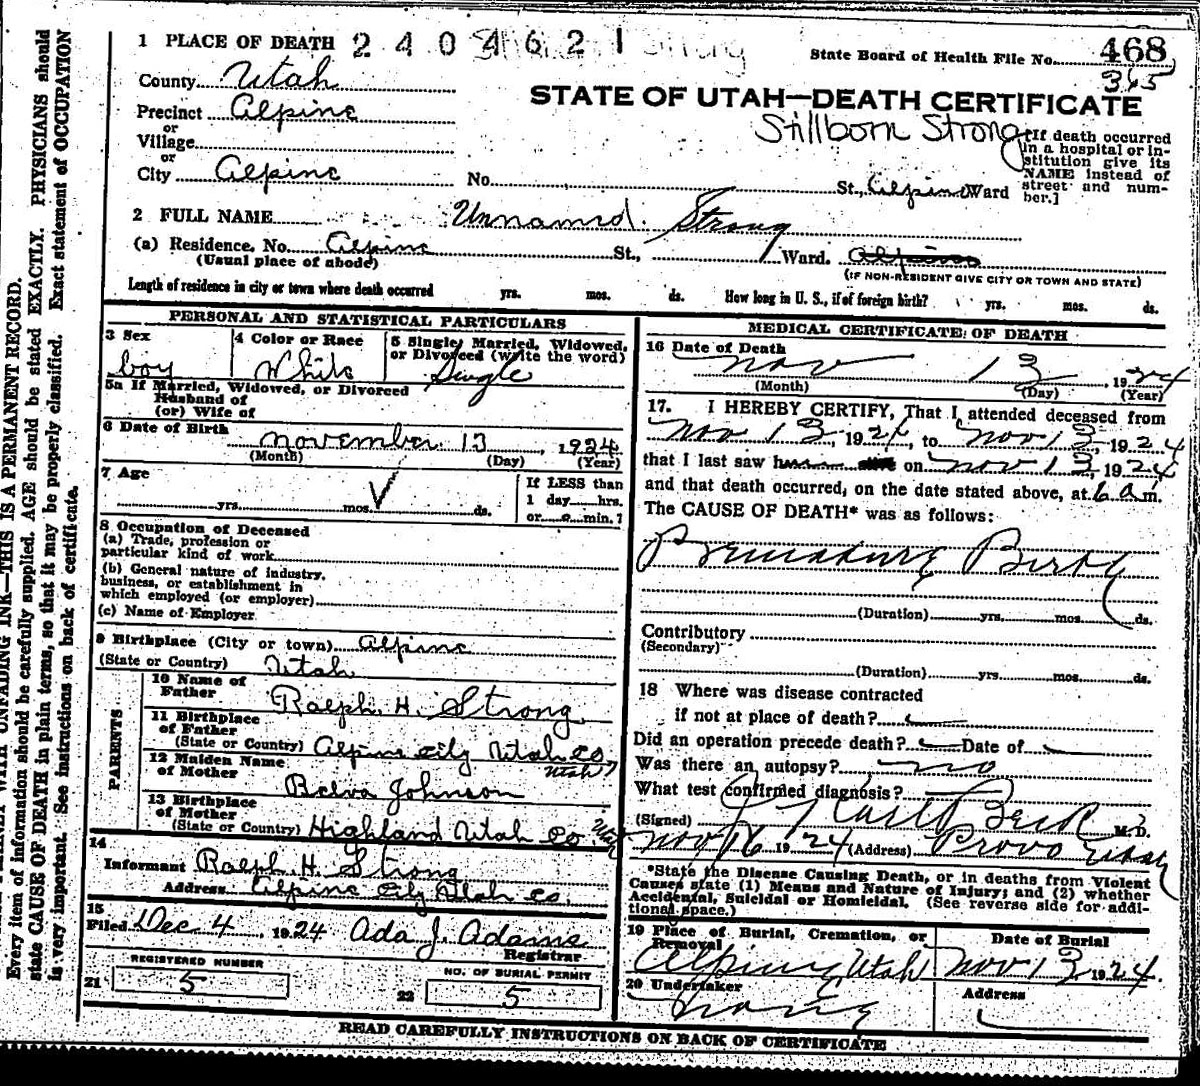 1 PLACE OF DEATH 2404621 Strong
State Board of Health File No. 468
365
County Utah
STATE OF UTAH—DEATH CERTIFICATE
Precinct Alpine
Stillborn Strong
or
Village
or
City Alpine No. St., Alpine Ward
[If death occurred
in a hospital or in-
stitution give its
NAME instead of
street and num-
ber.]
2 FULL NAME Unnamed Strong
(a) Residence. No. Alpine St., Ward. Alpine
(Usual place of abode)
(IF NON-RESIDENT GIVE CITY OR TOWN AND STATE)
Length of residence in city or town where death occurred yrs. mos. ds. How long in U. S., if of foreign birth? yrs. mos. ds.
PERSONAL AND STATISTICAL PARTICULARS
3 Sex
boy
4 Color or Race
White
5 Single, Married, Widowed,
or Divorced (write the word)
Single
5a If Married, Widowed, or Divorced
Husband of
(or) Wife of
6 Date of Birth November 13, 1924
(Month) (Day) (Year)
7 Age
yrs. mos. ds.
If LESS than
1 day hrs.
or min.?
8 Occupation of Deceased
(a) Trade, profession or
particular kind of work
(b) General nature of industry,
business, or establishment in
which employed (or employer)
(c) Name of Employer
9 Birthplace (City or town) Alpine
(State or Country) Utah
PARENTS
10 Name of
Father Ralph H. Strong
11 Birthplace
of Father
(State or Country) Alpine City Utah Co
Utah
12 Maiden Name
of Mother Belva Johnson
13 Birthplace
of Mother
(State or Country) Highland Utah Co Utah
14
Informant Ralph H. Strong
Address Alpine City Utah Co.
15
Filed Dec 4 1924 Ada J. Adams
Registrar
REGISTERED NUMBER
21 5
NO. OF BURIAL PERMIT
22 5
MEDICAL CERTIFICATE OF DEATH
16 Date of Death
Nov 13, 1924
(Month) (Day) (Year)
17. I HEREBY CERTIFY, That I attended deceased from
Nov 13, 1924, to Nov 13, 1924
that I last saw him alive on Nov 13, 1924
and that death occurred, on the date stated above, at 6 a m.
The CAUSE OF DEATH* was as follows:
Premature Birth
(Duration) yrs. mos. ds.
Contributory
(Secondary)
(Duration) yrs. mos. ds.
18 Where was disease contracted
if not at place of death?
Did an operation precede death? Date of
Was there an autopsy? no
What test confirmed diagnosis?
(Signed) J Karl Beck M.D.
Nov 16 1924 (Address) Provo Utah
*State the Disease Causing Death, or in deaths from Violent
Causes state (1) Means and Nature of Injury; and (2) whether
Accidental, Suicidal or Homicidal. (See reverse side for addi-
tional space.)
19 Place of Burial, Cremation, or
Removal
Alpine, Utah
Date of Burial
Nov 13 1924.
20 Undertaker
none
Address
READ CAREFULLY INSTRUCTIONS ON BACK OF CERTIFICATE
UNFADING INK—THIS IS A PERMANENT RECORD.
Every item of information should be carefully supplied. AGE should be stated EXACTLY. PHYSICIANS should
state CAUSE OF DEATH in plain terms, so that it may be properly classified. Exact statement of OCCUPATION
is very important. See instructions on back of certificate.